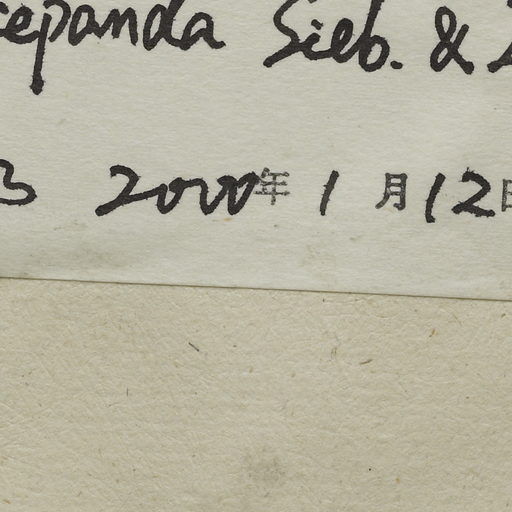 cepanda Sieb. &
3 2000年 1 月 12日